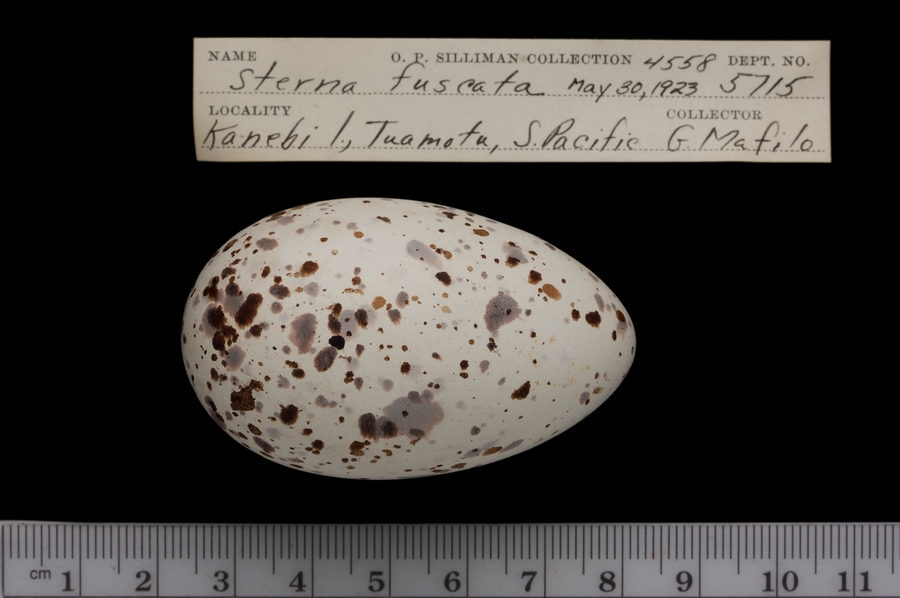 NAME O. P. SILLIMAN COLLECTION 4558 DEPT. NO.
Sterna fuscata May 30, 1923 5715
LOCALITY COLLECTOR
Kanebi I., Tuamotu, S. Pacific G. Mafilo
cm 1 2 3 4 5 6 7 8 9 10 11